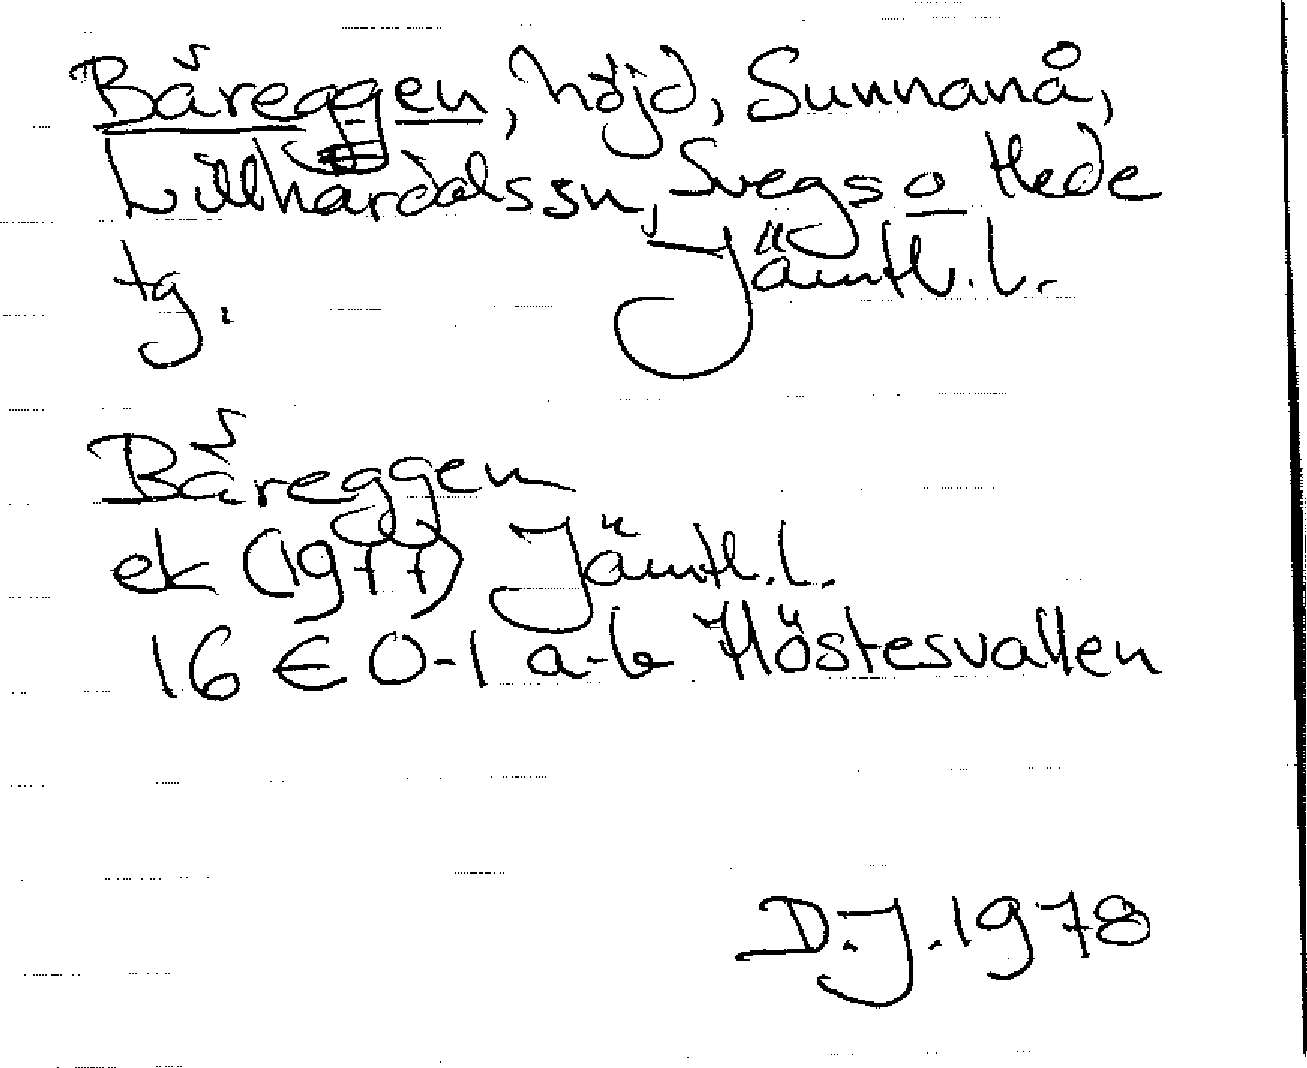 Båreggen, höjd, Sunnanå,
Lillhärdalssn, Svegs o Hede
tg. Jämtl. l.
Båreggen
ek (1977) Jämtl. l.
16 E 0-1 a-b Höstesvallen
D.J. 1978